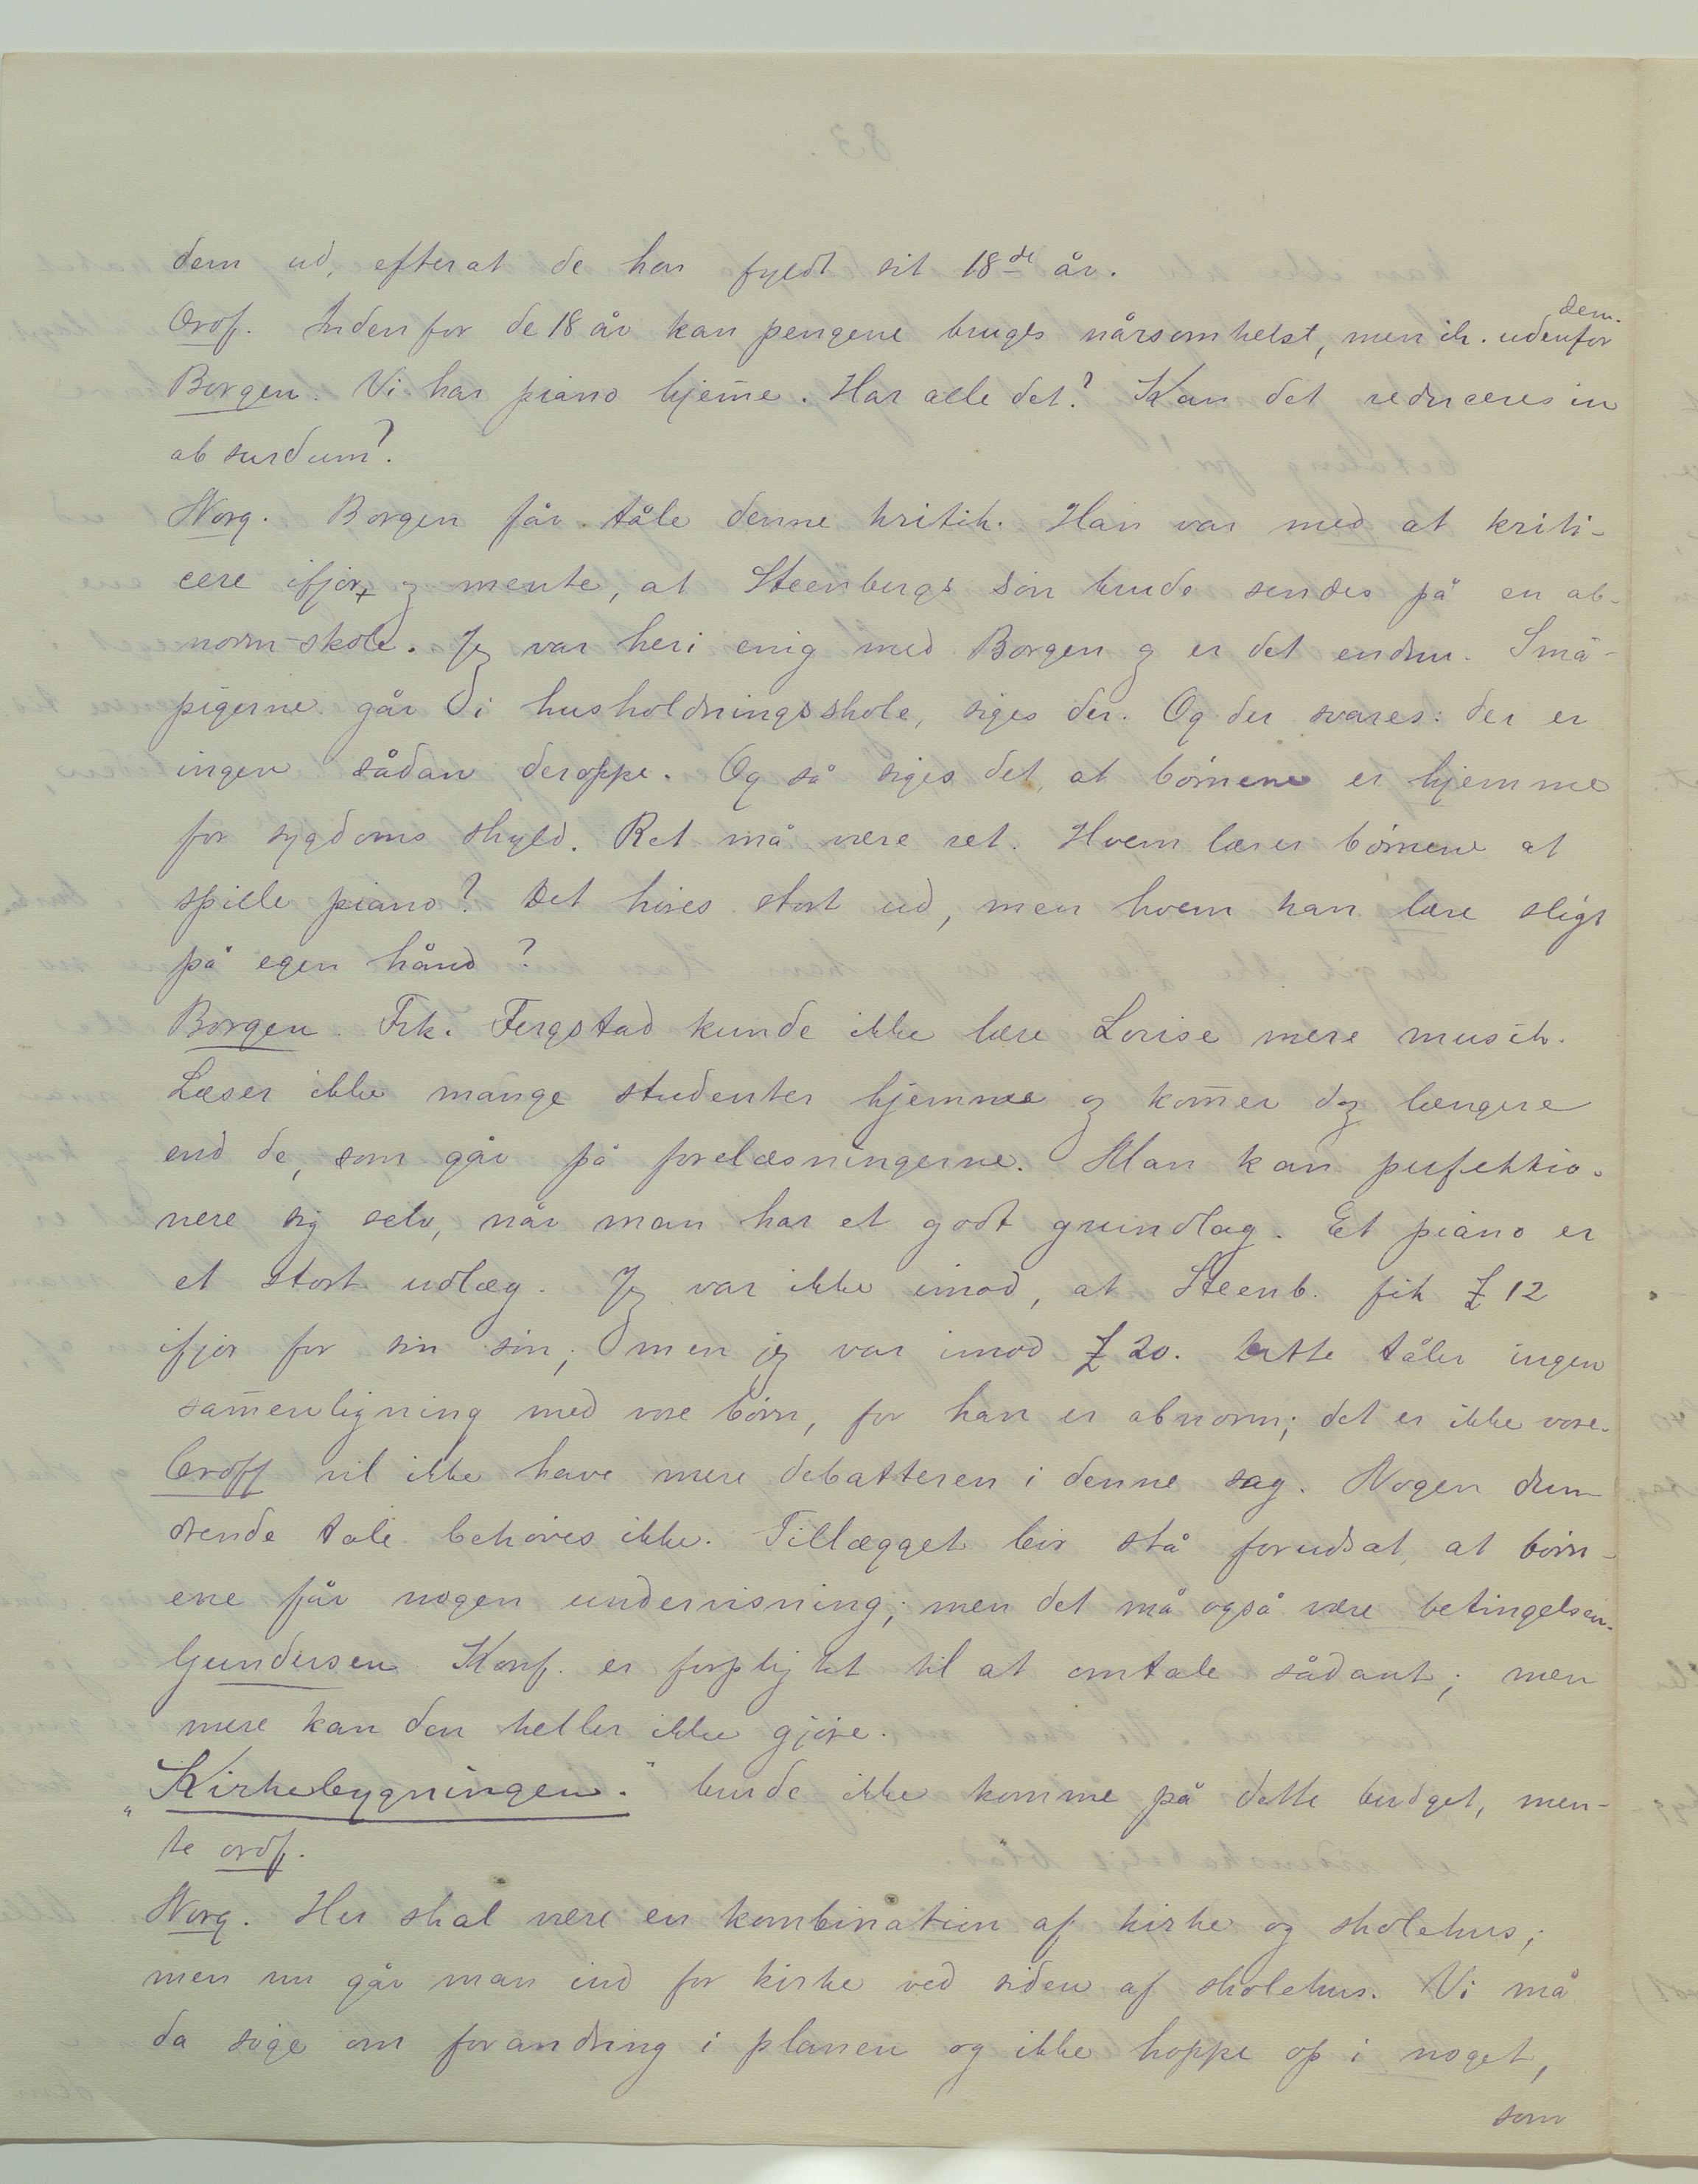 dem ud, efterat de har fyldt sit 18de år.
Ordf. Indenfor de 18 år kan pengene bruges nårsomhelst, men ik. udenfor dem.
Borgen. Vi har piano hjem̄e. Har alle det? Kan det reduceres in
absurdum?
Norg. Borgen får tåle denne kritik. Han var med at kriti-
cere ifjor, og mente, at Steenbergs søn burde sendes på en ab-
norm-skole. Jeg var heri enig med Borgen og er det endnu. Små-
pigerne går i husholdningsskole, siges der. Og der svares: der er
ingen sådan deroppe. Og så siges det, at børnene er hjemme
for sygdoms skyld. Ret må være ret. Hvem lærer børnene at
spille piano? Det høres stort ud, men hvem kan lære sligt
på egen hånd?
Borgen. Frk. Fergstad kunde ikke lære Lovise mere musik.
Læser ikke mange studenter hjemme og kom̄er dog længere
end de, som går på forelæsningerne. Man kan perfektio-
nere sig selv, når man har et godt grundlag. Et piano er
et stort udlæg. Jeg var ikke imod, at Steenb. fik £ 12
ifjor for sin søn; men jeg var imod £ 20. Dette tåler ingen
sam̄enligning med vore børn, for han er abnorm; det er ikke vore.
Ordf vil ikke have mere debatteren i denne sag. Nogen dun-
drende tale behøves ikke. Tillægget bør stå forudsat, at børn-
ene får nogen undervisning; men det må også være betingelsen.
Gundersen Konf. er forpligtet til at omtale sådant; men
mere kan den heller ikke gjøre.
"Kirkebygningen." burde ikke komme på dette budget, men-
te ordf.
Norg. Her skal være en kombination af kirke og skolehus;
men nu går man ind for kirke ved siden af skolehus. Vi må
da søge om forandring i planen og ikke hoppe op i noget,
som